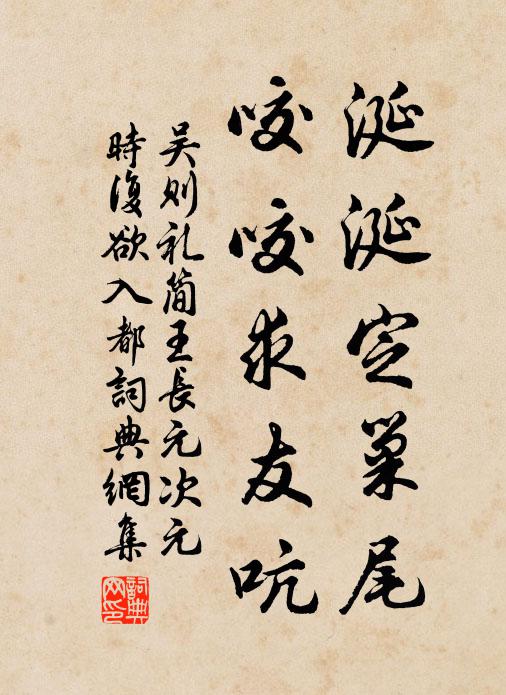 涎涎定巢尾
咬咬求友吭
吴则礼简王長元次元
時復欲入都詞典網集
詞典网印